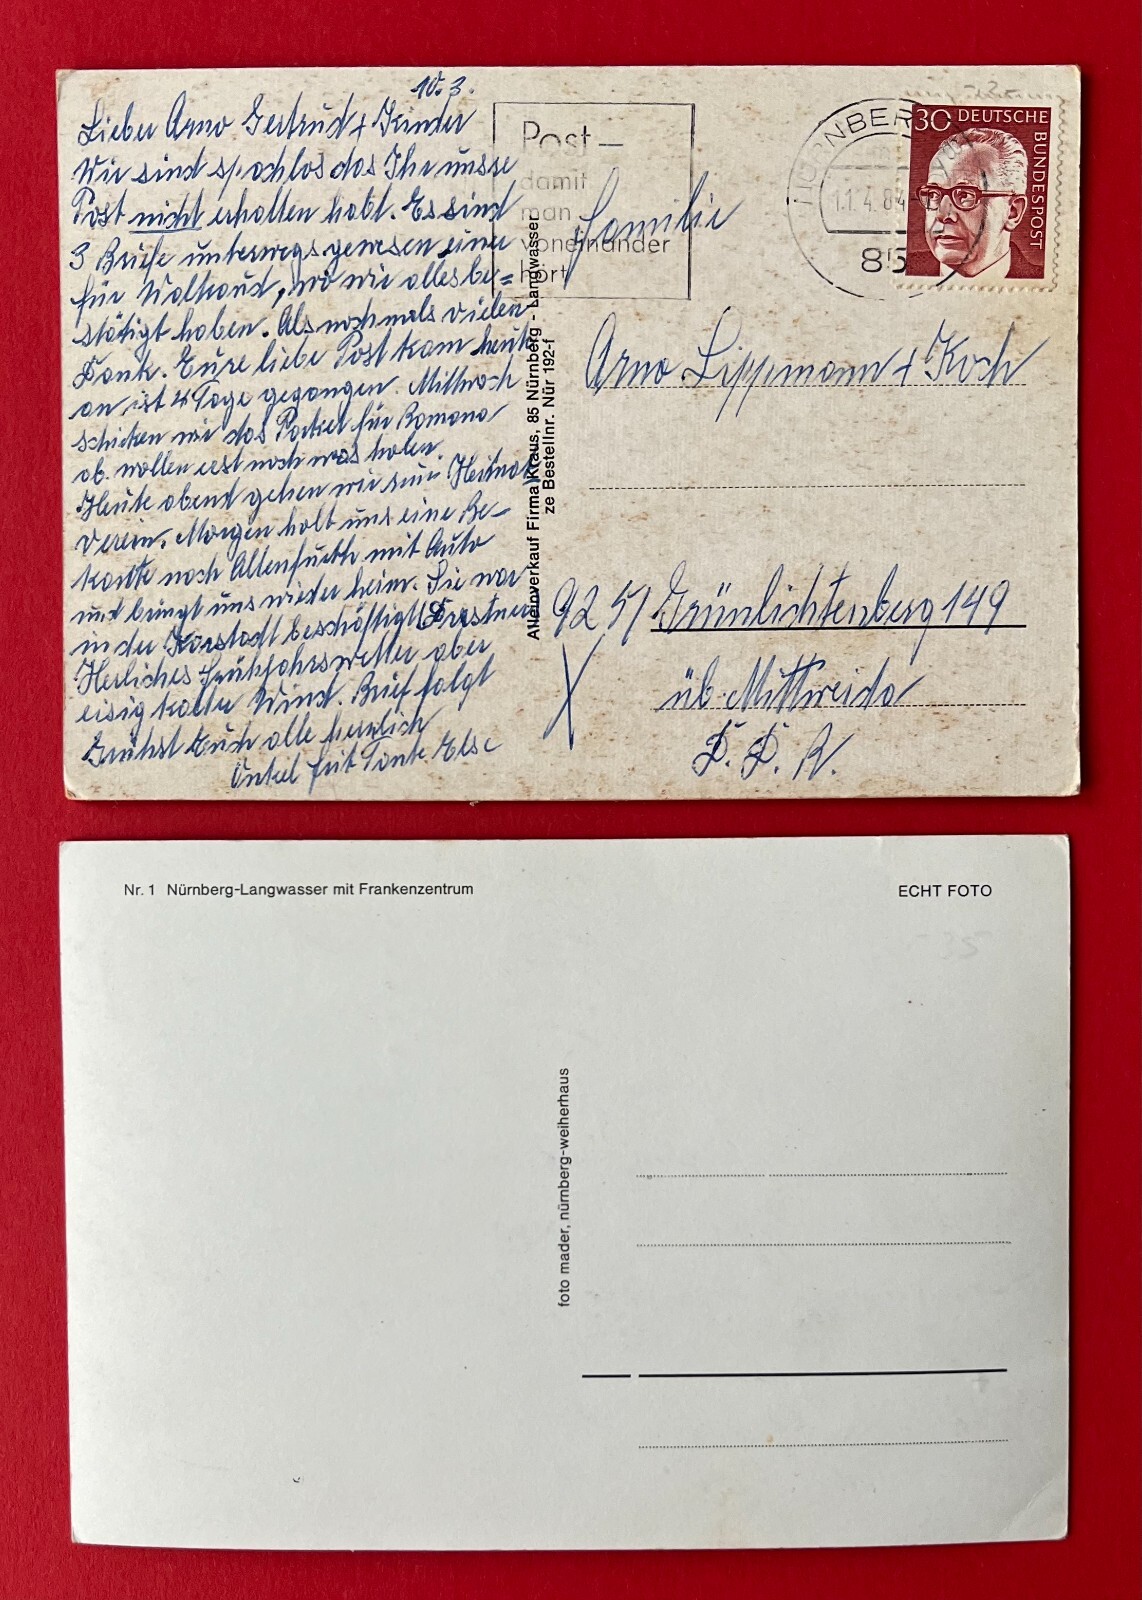 10. 3.
Lieber Arno Gertrud + Kinder
Wir sind sprachlos das Ihr unsere
Post nicht erhalten habt. Es sind
3 Briefe unterwegs gewesen einer
für Waltraud, wo wir alles be=
stätigt haben. Also nochmals vielen
Dank. Eure liebe Post kam heute
an ist 4 Tage gegangen. Mittwoch
schicken wir das Packet für Romana
ab. wollen erst noch was holen.
Heute abend gehen wir zum Heimat
Verein. Morgen holt uns eine Be-
kante nach Altenfurth mit Auto
und bringt uns wieder heim. Sie war
in der Karstadt beschäftigt
Herliches Frühjahrswetter aber
eisig kalter Wind. Brief folgt
Grühst Euch alle herzlich
Onkel Frit Tante Else
Post –
damit
man
voneinander
hört
NÜRNBERG
11.4.84
85
30 DEUTSCHE
BUNDESPOST
Alleinverkauf Firma Kraus, 85 Nürnberg - Langwasser
ze Bestellnr. Nür 192-f
Familie
Arno Lippmann + Koch
9251 Grünlichtenberg 149
üb. Mittweida
D. D. R.
Nr. 1 Nürnberg-Langwasser mit Frankenzentrum
ECHT FOTO
35
foto mader, nürnberg-weiherhaus